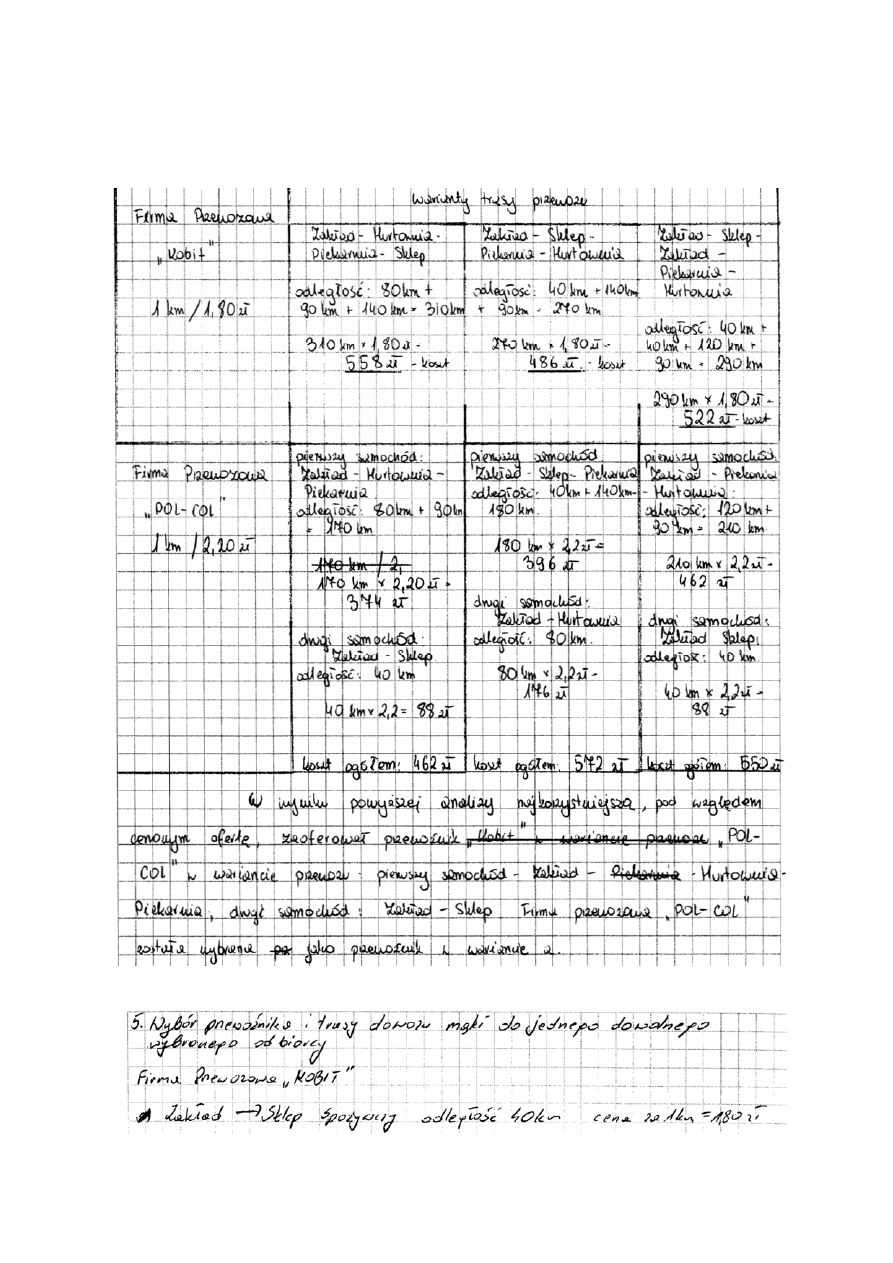 Warianty trasy przewozu
Firma Przewozowa
"Kobit"
1 km / 1,80 zł
Zakład - Hurtownia -
Piekarnia - Sklep
odległość: 80 km +
90 km + 140 km = 310 km
310 km × 1,80 zł =
558 zł - koszt
Zakład - Sklep -
Piekarnia - Hurtownia
odległość: 40 km + 140 km
+ 90 km = 270 km
270 km × 1,80 zł =
486 zł - koszt
Zakład - Sklep -
Zakład -
Piekarnia -
Hurtownia
odległość: 40 km +
40 km + 120 km +
90 km = 290 km
290 km × 1,80 zł =
522 zł - koszt
Firma Przewozowa
"POL-COL"
1 km / 2,20 zł
pierwszy samochód:
Zakład - Hurtownia -
Piekarnia
odległość: 80 km + 90 km
= 170 km
170 km / 2,
170 km × 2,20 zł =
374 zł
drugi samochód:
Zakład - Sklep
odległość: 40 km
40 km × 2,2 = 88 zł
koszt ogółem: 462 zł
pierwszy samochód:
Zakład - Sklep - Piekarnia
odległość: 40 km + 140 km =
180 km.
180 km × 2,2 zł =
396 zł
drugi samochód:
Zakład - Hurtownia
odległość: 80 km.
80 km × 2,2 zł =
176 zł
koszt ogółem: 572 zł
pierwszy samochód
Zakład - Piekarnia
- Hurtownia:
odległość: 120 km +
90 km = 210 km
210 km × 2,2 zł =
462 zł
drugi samochód:
Zakład Sklep:
odległość: 40 km.
40 km × 2,2 zł =
88 zł
koszt ogółem: 550 zł
W wyniku powyższej analizy najkorzystniejszą, pod względem
cenowym ofertę, zaoferował przewoźnik "Kobit" w wariancie przewozu "POL-
COL" w wariancie przewozu: pierwszy samochód - Zakład - Piekarnia - Hurtownia -
Piekarnia, drugi samochód: Zakład - Sklep Firma przewozowa "POL-COL"
została wybrana jako przewoźnik w wariancie a.
5. Wybór przewoźnika i trasy dowozu mąki do jednego dowolnego
wybranego odbiorcy
Firma Przewozowa "KOBIT"
Zakład → Sklep spożywczy odległość 40 km cena za 1 km = 1,80 zł